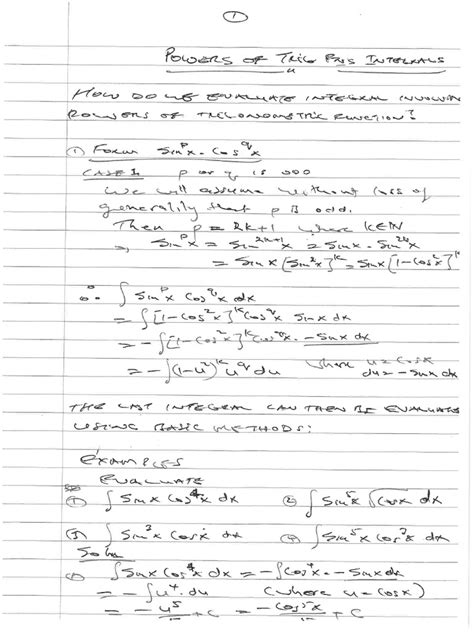 1
POWERS OF TRIG FNS INTEGRALS
HOW DO WE EVALUATE INTEGRAL INVOLVING
POWERS OF TRIGONOMETRIC FUNCTION?
① FORM sin^p x · cos^q x
CASE 1 p or q is odd
We will assume without loss of
generality that p is odd.
Then p = 2k+1 where k∈N
⇒ sin^p x = sin^{2k+1} x = sin x · sin^{2k} x
= sin x [sin² x]^k = sin x [1-cos² x]^k
∴ ∫ sin^p x cos^q x dx
= ∫[1-cos² x]^k cos^q x sin x dx
= -∫[1-cos² x]^k cos^q x · -sin x dx
= -∫(1-u²)^k u^q du where u = cos x
du = -sin x dx
THE LAST INTEGRAL CAN THEN BE EVALUATED
USING BASIC METHODS:
EXAMPLES
EVALUATE
① ∫ sin x cos⁴ x dx ② ∫ sin⁵ x √cos x dx
③ ∫ sin³ x cos x dx ④ ∫ sin⁵ x cos² x dx
Soln
① ∫ sin x cos⁴ x dx = -∫ cos⁴ x · -sin x dx
= -∫ u⁴ · du (where u = cos x)
= -u⁵ + C = -cos⁵ x + C